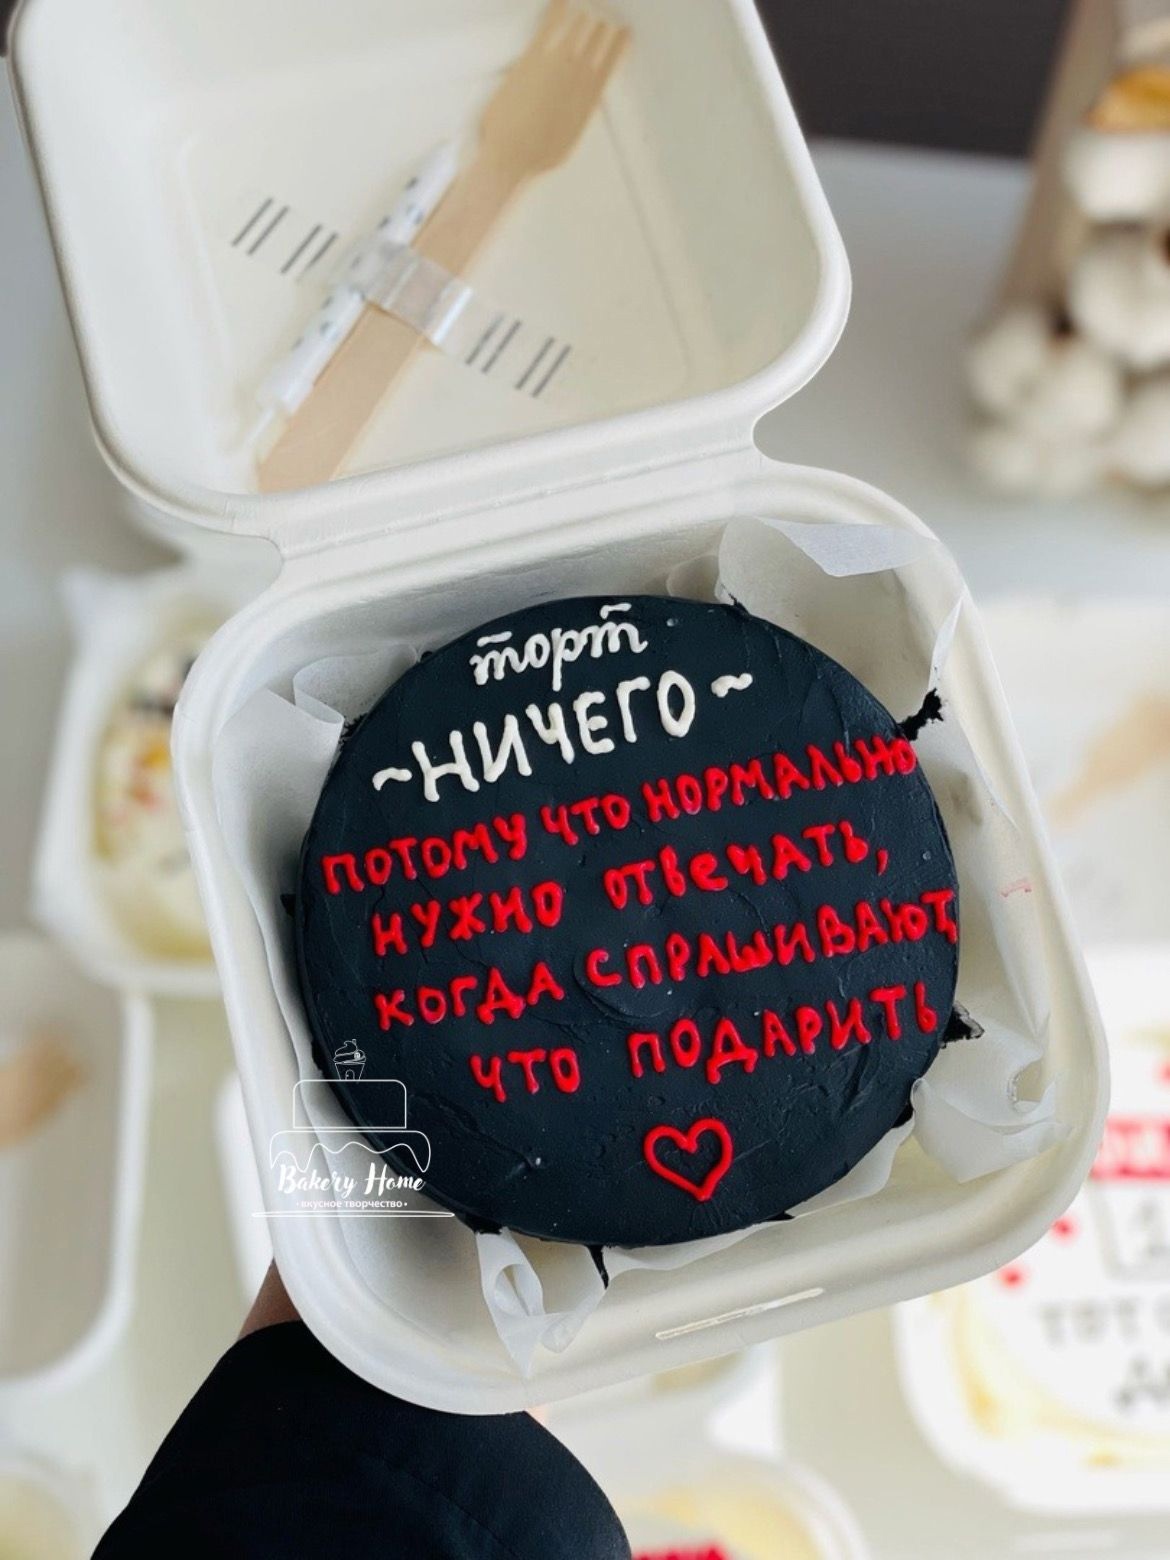 торт
~НИЧЕГО~
ПОТОМУ ЧТО НОРМАЛЬНО
НУЖНО ОТВЕЧАТЬ,
КОГДА СПРАШИВАЮТ,
ЧТО ПОДАРИТЬ
Bakery Home
•вкусное творчество•